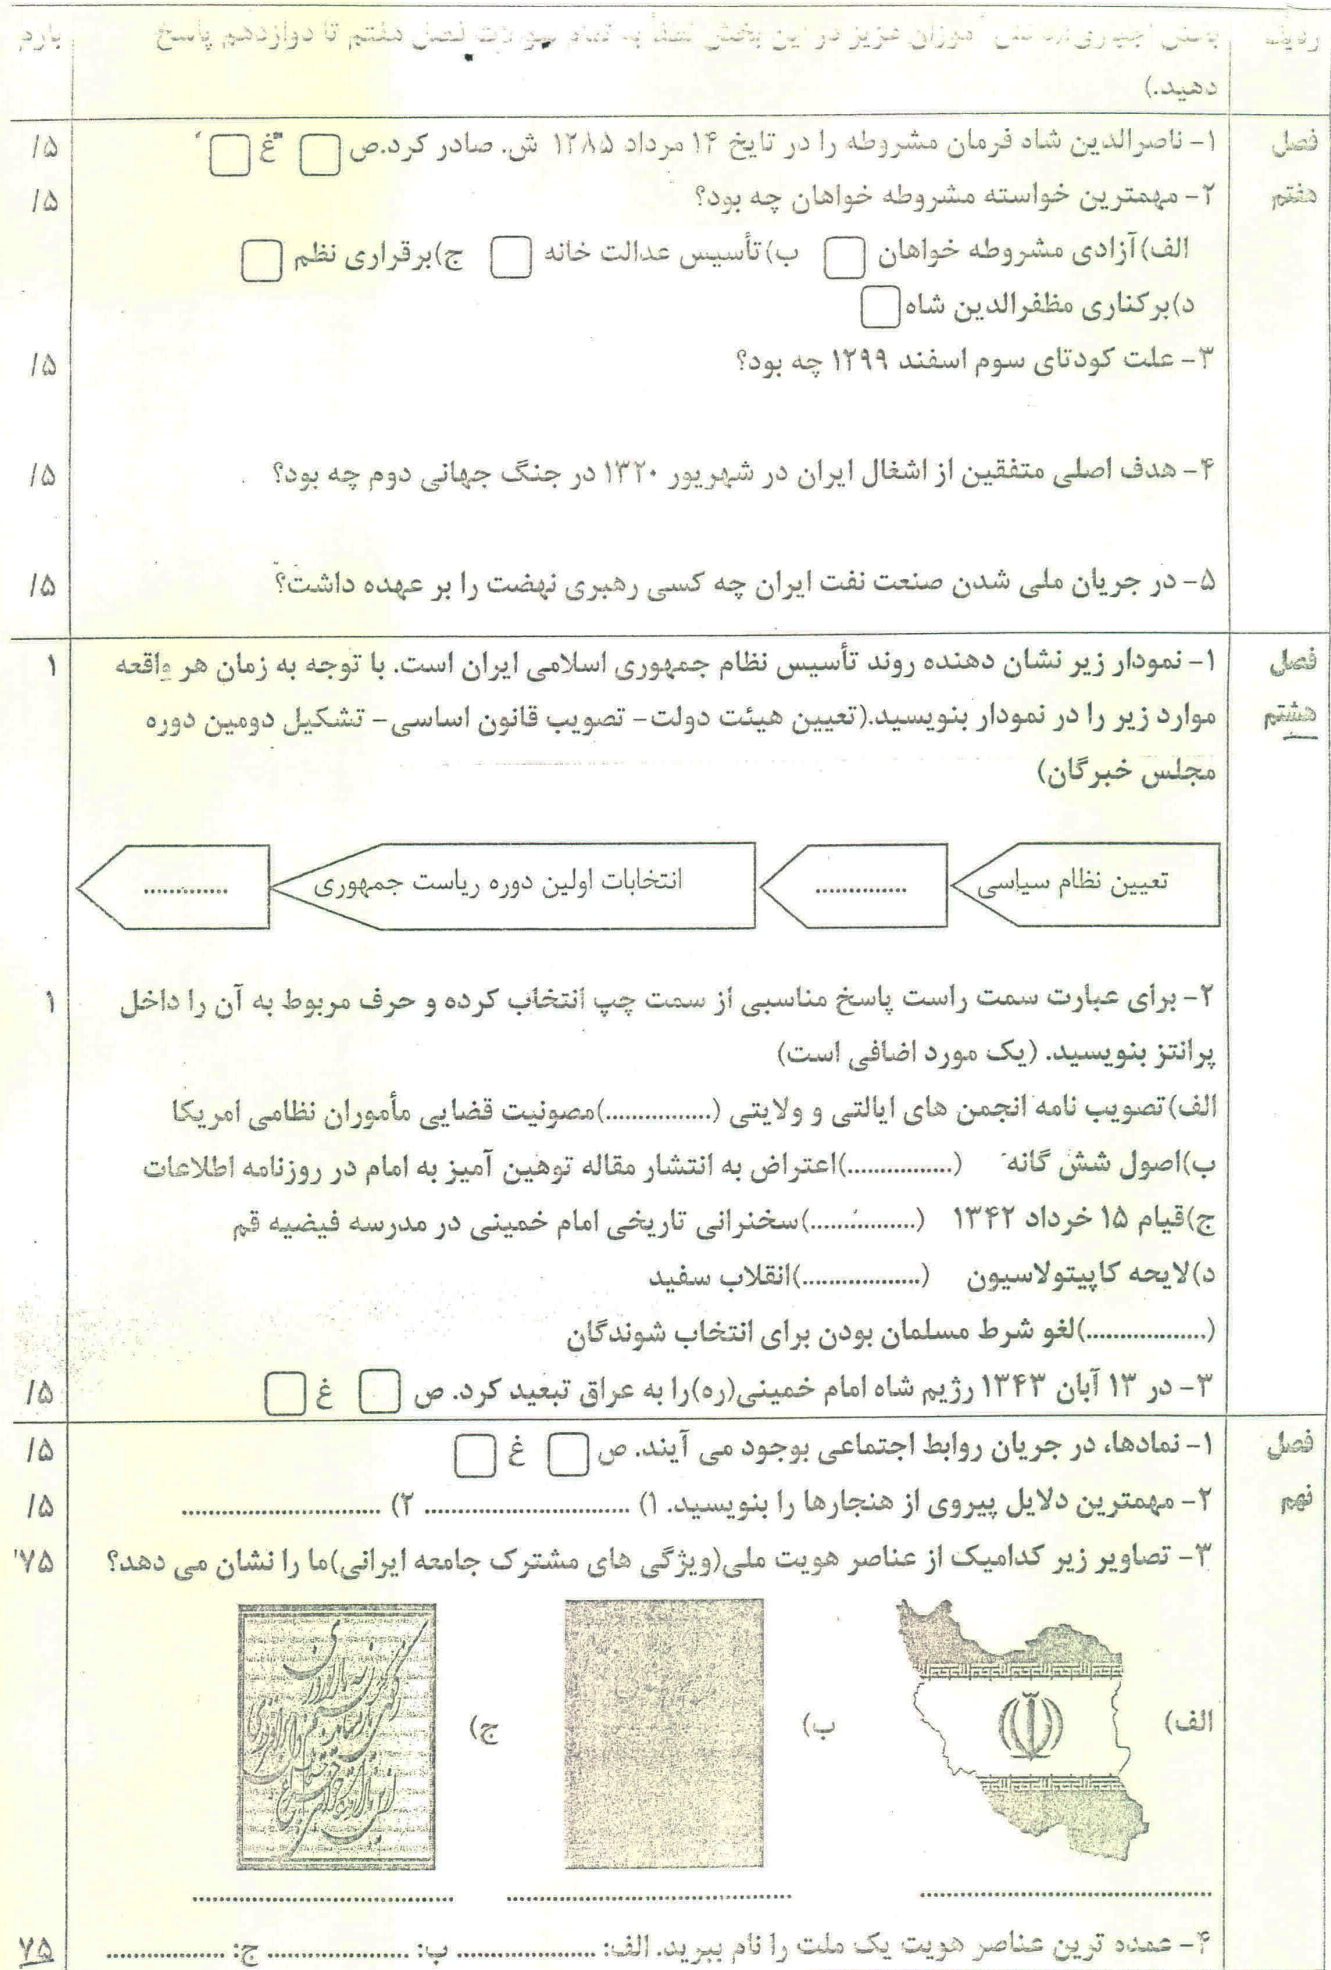 ردیف بخش اجباری: دانش آموزان عزیز در این بخش لطفا به تمام سوالات فصل هفتم تا دوازدهم پاسخ بارم
دهید.)
فصل ۱- ناصرالدین شاه فرمان مشروطه را در تایخ ۱۴ مرداد ۱۲۸۵ ش. صادر کرد.ص غ /۵
هفتم ۲- مهمترین خواسته مشروطه خواهان چه بود؟ /۵
الف)آزادی مشروطه خواهان ب)تأسیس عدالت خانه ج)برقراری نظم
د)برکناری مظفرالدین شاه
۳- علت کودتای سوم اسفند ۱۲۹۹ چه بود؟ /۵
۴- هدف اصلی متفقین از اشغال ایران در شهریور ۱۳۲۰ در جنگ جهانی دوم چه بود؟ /۵
۵- در جریان ملی شدن صنعت نفت ایران چه کسی رهبری نهضت را بر عهده داشت؟ /۵
فصل ۱- نمودار زیر نشان دهنده روند تأسیس نظام جمهوری اسلامی ایران است. با توجه به زمان هر واقعه ۱
هشتم موارد زیر را در نمودار بنویسید.(تعیین هیئت دولت- تصویب قانون اساسی- تشکیل دومین دوره
مجلس خبرگان)
تعیین نظام سیاسی .............. انتخابات اولین دوره ریاست جمهوری .............
۲- برای عبارت سمت راست پاسخ مناسبی از سمت چپ انتخاب کرده و حرف مربوط به آن را داخل ۱
پرانتز بنویسید. (یک مورد اضافی است)
الف)تصویب نامه انجمن های ایالتی و ولایتی (................)مصونیت قضایی مأموران نظامی امریکا
ب)اصول شش گانه (................)اعتراض به انتشار مقاله توهین آمیز به امام در روزنامه اطلاعات
ج)قیام ۱۵ خرداد ۱۳۴۲ (................)سخنرانی تاریخی امام خمینی در مدرسه فیضیه قم
د)لایحه کاپیتولاسیون (..................)انقلاب سفید
(..................)لغو شرط مسلمان بودن برای انتخاب شوندگان
۳- در ۱۳ آبان ۱۳۴۳ رژیم شاه امام خمینی(ره)را به عراق تبعید کرد. ص غ /۵
فصل ۱- نمادها، در جریان روابط اجتماعی بوجود می آیند. ص غ /۵
نهم ۲- مهمترین دلایل پیروی از هنجارها را بنویسید. ۱) ............................... ۲) .............................. /۵
۳- تصاویر زیر کدامیک از عناصر هویت ملی(ویژگی های مشترک جامعه ایرانی)ما را نشان می دهد؟ ۷۵'
الف) ب) ج)
............................................ ........................................... ........................................
۴- عمده ترین عناصر هویت یک ملت را نام ببرید. الف: ..................... ب: ..................... ج: .................. ۷۵